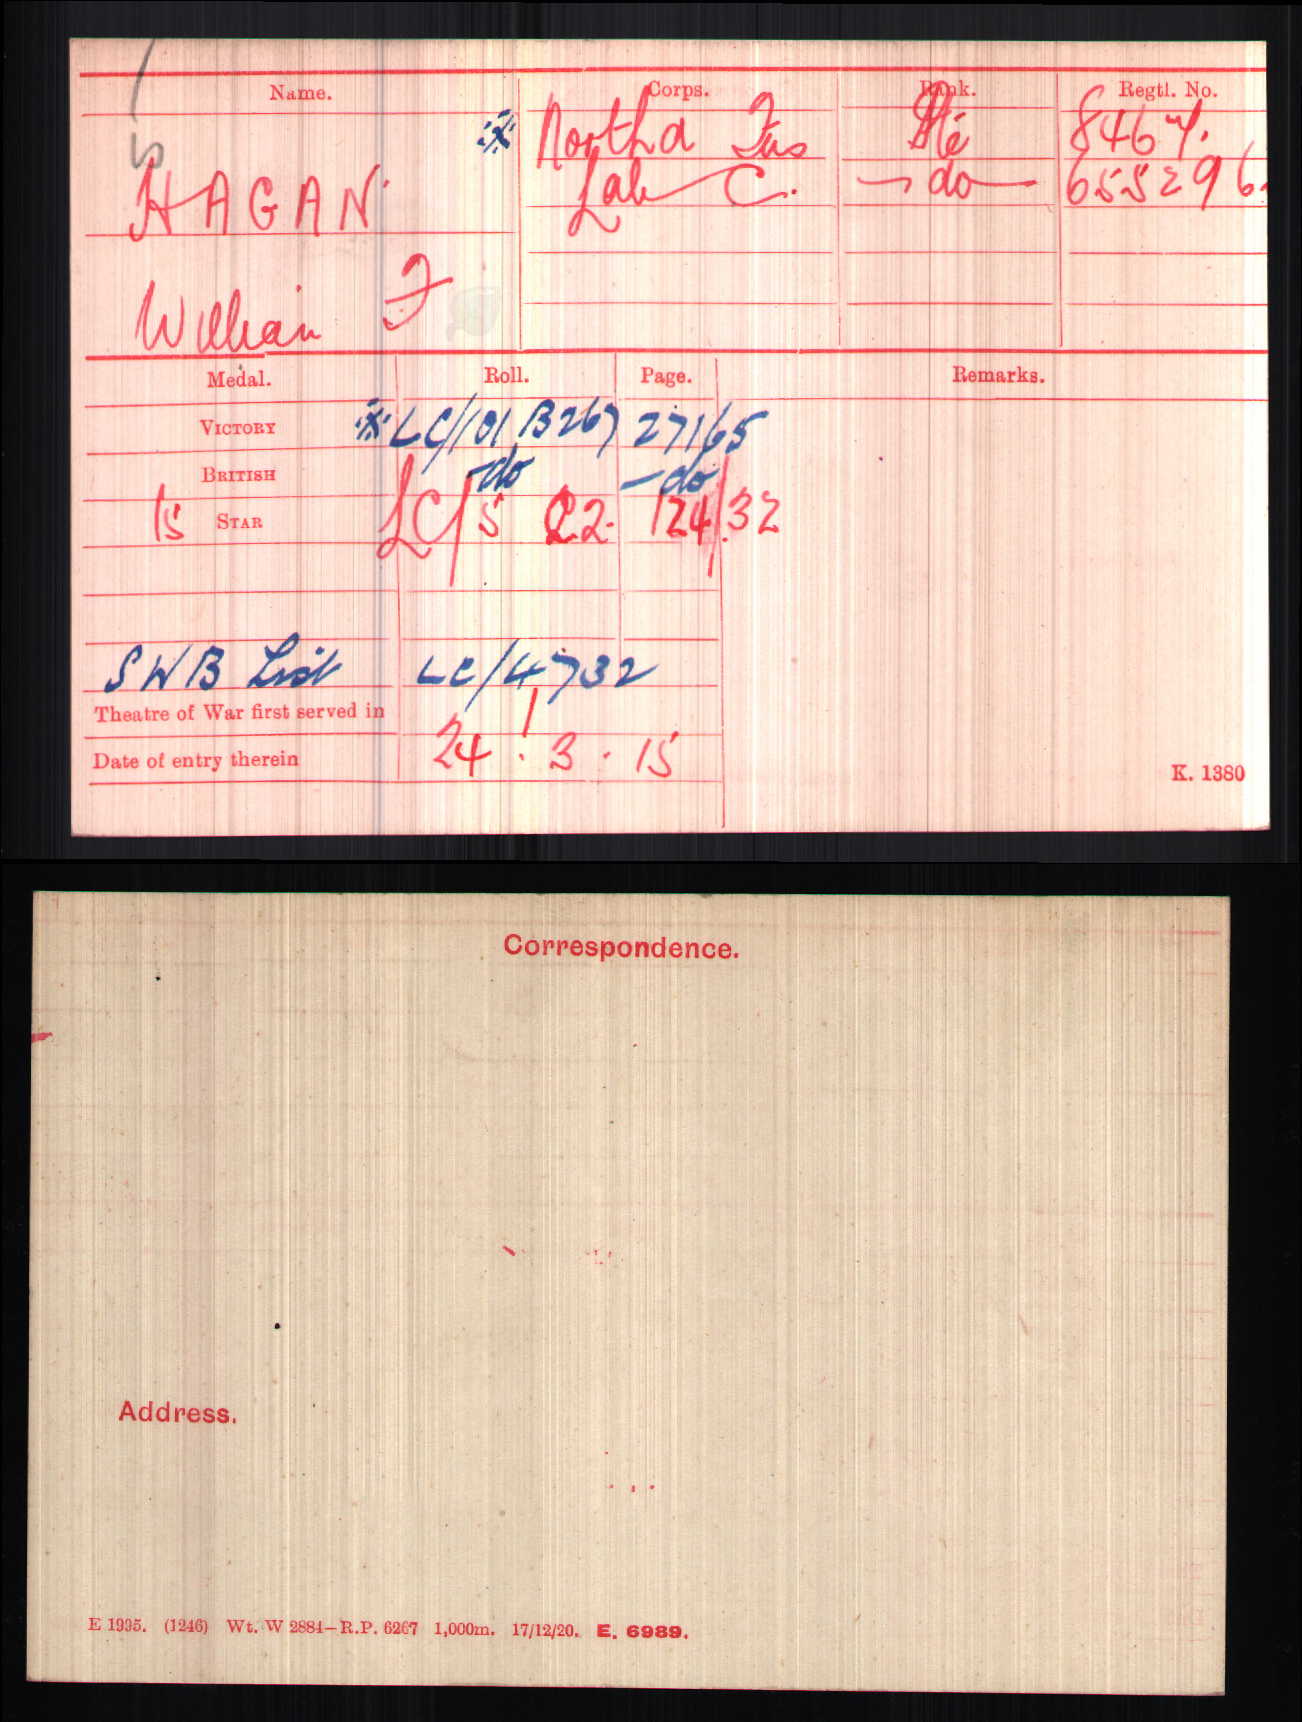 Name. Corps. Rank. Regtl. No.
※ North'd Fus Pte 8467.
HAGAN Lab C. — do — 655296.
William F
Medal. Roll. Page. Remarks.
VICTORY ※ LC/101 B267 27165
BRITISH -do -do
15 STAR LC/5 C2. 124/32
SWB List LC/4732
Theatre of War first served in 1
Date of entry therein 24.3.15
K. 1380
Correspondence.
Address.
E 1995. (1246) Wt. W 2884—R.P. 6267 1,000m. 17/12/20. E. 6989.